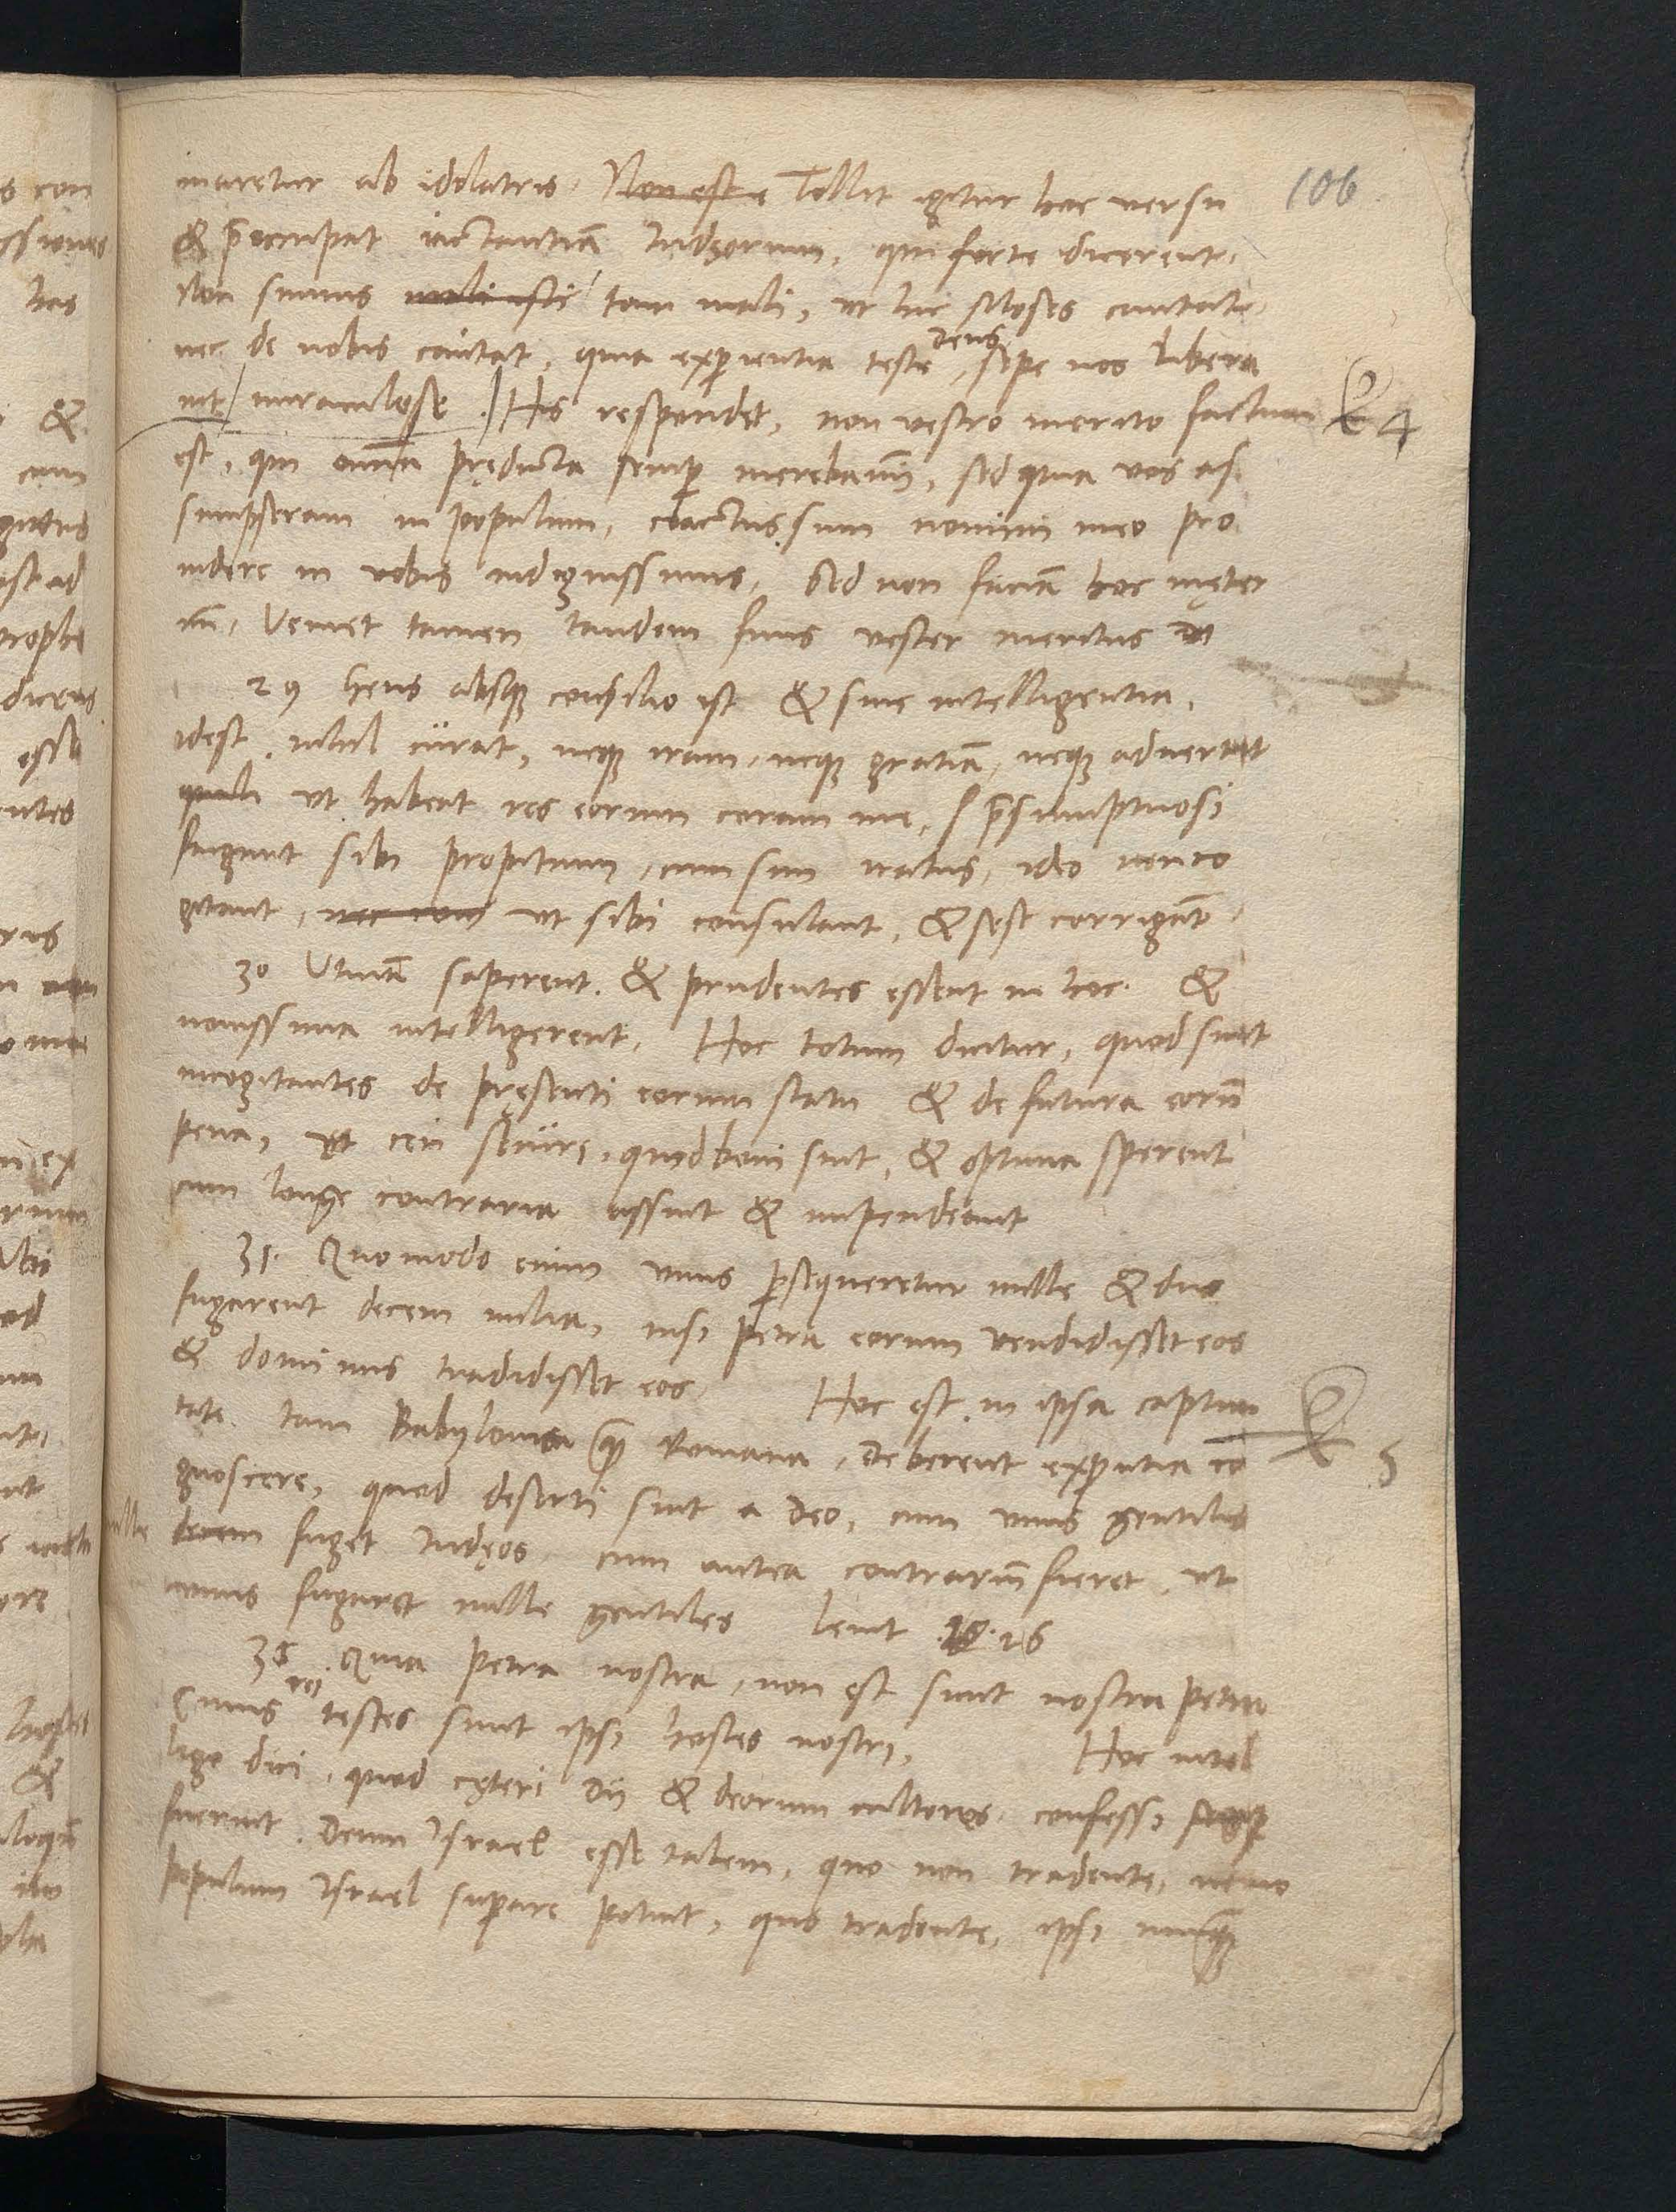 106
maretur ab idolatris. Non est e Tollit igitur hoc versu
& p̄occupat iactantiā Iudęorum, qui forte dicerent.
Non sumus tam mali, ut hic Moses cantat
nec de nobis cantat, quia exp̄ientia teste Deus sepe nos libera
uit miraculose. His respondet, non vestro merito factum
est, qui omnia prędicta semp̄ merebamī, sed quia vos as
sumpseram in populum, coactus sum nomini meo pro
uidere in vobis indignissimis. Sed non faciā hoc inęter
nū. Veniet tamen tandem finis vester meritus
29 Gens absq; consilio est & sine intelligentia,
idest, nihil curat, neq; iram, neq; gratiā, neq; aduertit
ut habeat res eorum coram me, p̄sumptuosi
fingunt sibi propitium, cum sim iratus, ideo non co
gitant, ut sibi consulant, & sese corrigāt.
30 Utinā saperent. & prudentes essent in hoc. &
nouissima intelligerent. Hoc totum dicitur, quod sint
incogitantes de pręsenti eorum statu & de futura eorū
pena, ut ceu secure, quid boni sint, & optima sperent
cum longe contraria assint & impendeant
31. Quomodo enim vnus p̄sequeretur mille & duo
fugarent decem milia, nisi petra eorum vendidisset eos
& dominus tradidisset eos. Hoc est, in ipsa captiui
tate tam Babylonica q̃ Romana, Deberent exp̄ientia co
gnoscere, quod deserti sint a Deo, cum vnus gentilis
mille decem fuget Iudęos, cum antea contrariū fieret, ut
vnus fugaret mille gentiles Leuit 26
Quia petra nostra, non est sicut nostra petra
Cuius rei testes sunt ipsi hostes nostri. Hoc intel
lige dici, quod cęteri Dii & deorum cultores confessi semp̄
fuerint Deum Israel esse talem, quo non tradente, nemo
populum Israel sup̄are potuit, quo tradente, ipsi nunq̃